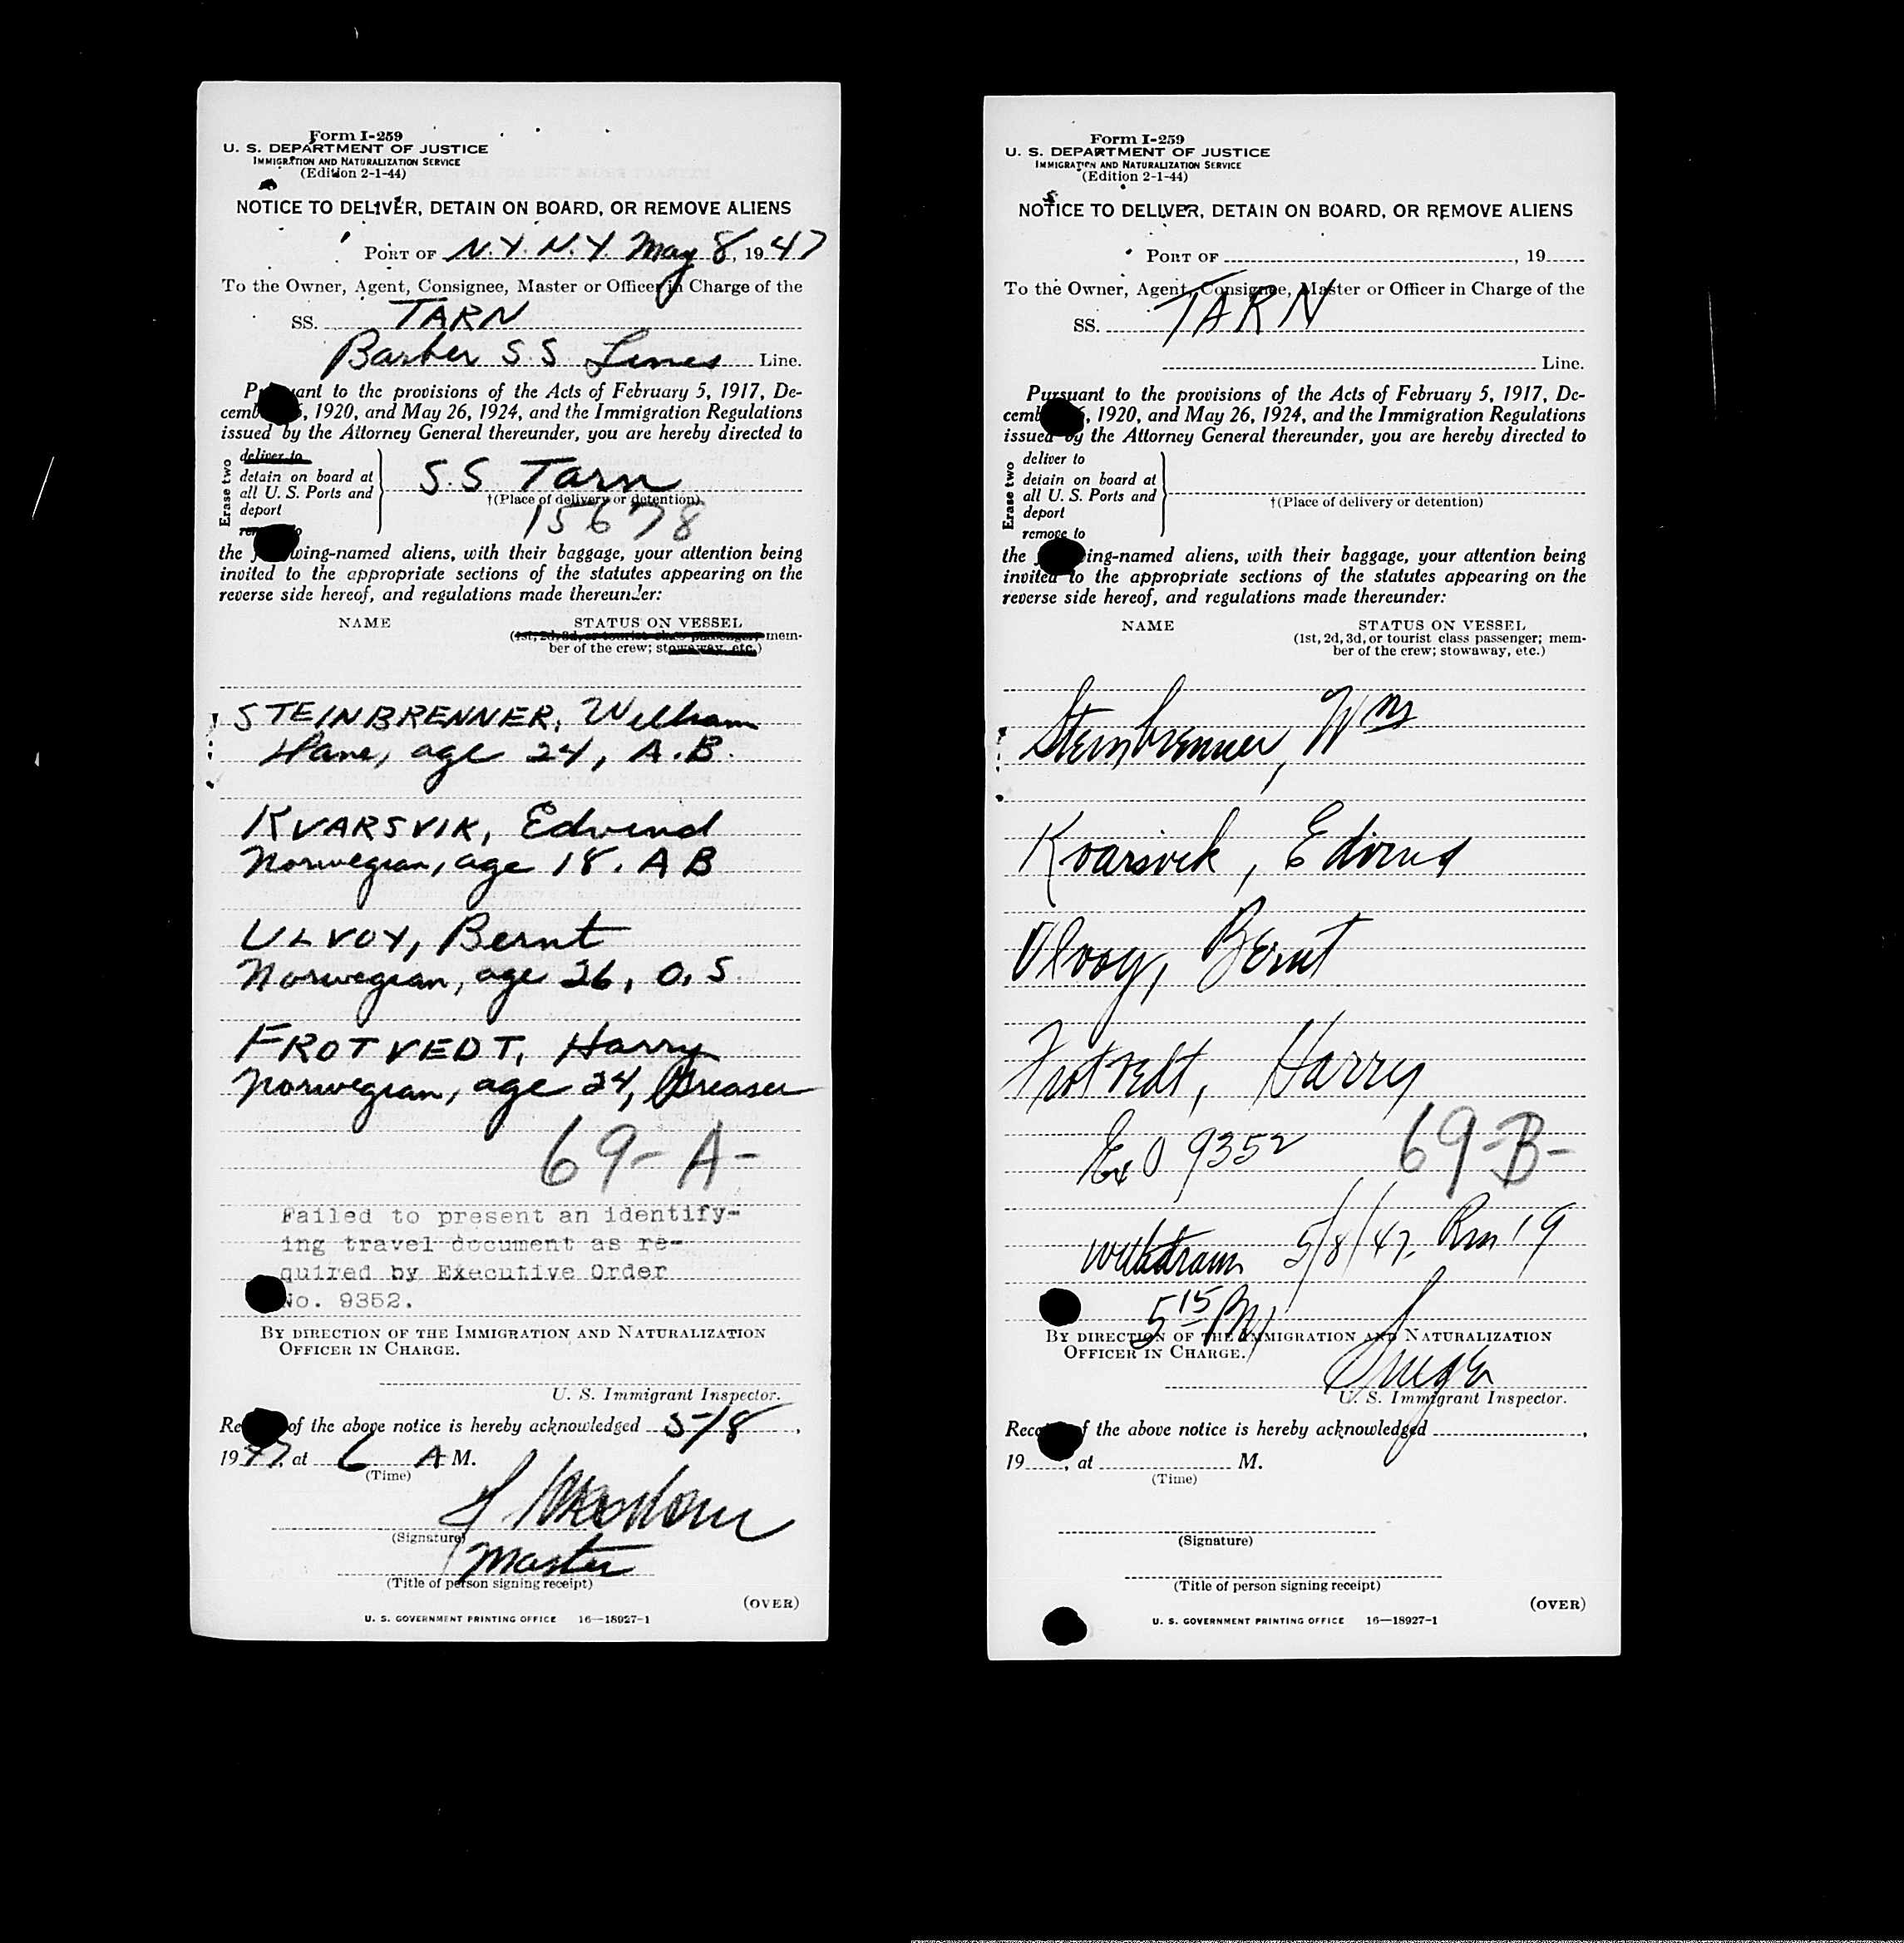 Form I-259
U. S. DEPARTMENT OF JUSTICE
IMMIGRATION AND NATURALIZATION SERVICE
(Edition 2-1-44)
NOTICE TO DELIVER, DETAIN ON BOARD, OR REMOVE ALIENS
PORT OF N.Y. N.Y. May 8, 1947
To the Owner, Agent, Consignee, Master or Officer in Charge of the
SS. TARN
Barber S S Lines Line.
Pursuant to the provisions of the Acts of February 5, 1917, De-
cember 26, 1920, and May 26, 1924, and the Immigration Regulations
issued by the Attorney General thereunder, you are hereby directed to
Erase two
deliver to
detain on board at
all U. S. Ports and
deport
remove to
S.S Tarn
†(Place of delivery or detention)
15678
the following-named aliens, with their baggage, your attention being
invited to the appropriate sections of the statutes appearing on the
reverse side hereof, and regulations made thereunder:
NAME STATUS ON VESSEL
(1st, 2d, 3d, or tourist class passenger; mem-
ber of the crew; stowaway, etc.)
STEINBRENNER, William
Dane, age 24, A.B.
KVARSVIK, Edvind
Norwegian, age 18. A B
ULVOY, Bernt
Norwegian, age 26, O.S.
FROTVEDT, Harry
Norwegian, age 24, Greaser
69-A-
Failed to present an identify-
ing travel document as re-
quired by Executive Order
No. 9352.
BY DIRECTION OF THE IMMIGRATION AND NATURALIZATION
OFFICER IN CHARGE.
U. S. Immigrant Inspector.
Receipt of the above notice is hereby acknowledged 5/8,
1947, at 6 A M.
(Time)
(Signature)
Master
(Title of person signing receipt)
(OVER)
U. S. GOVERNMENT PRINTING OFFICE 16—18927-1
Form I-259
U. S. DEPARTMENT OF JUSTICE
IMMIGRATION AND NATURALIZATION SERVICE
(Edition 2-1-44)
NOTICE TO DELIVER, DETAIN ON BOARD, OR REMOVE ALIENS
PORT OF , 19
To the Owner, Agent, Consignee, Master or Officer in Charge of the
SS. TARN
Line.
Pursuant to the provisions of the Acts of February 5, 1917, De-
cember 26, 1920, and May 26, 1924, and the Immigration Regulations
issued by the Attorney General thereunder, you are hereby directed to
Erase two
deliver to
detain on board at
all U. S. Ports and
deport
remove to
†(Place of delivery or detention)
the following-named aliens, with their baggage, your attention being
invited to the appropriate sections of the statutes appearing on the
reverse side hereof, and regulations made thereunder:
NAME STATUS ON VESSEL
(1st, 2d, 3d, or tourist class passenger; mem-
ber of the crew; stowaway, etc.)
Steinbrenner, Wm
Kvarsvik, Edvind
Ulvoy, Bernt
Frotvedt, Harry
Ex O 9352 69-B-
Withdrawn 5/8/47. Rm 19
5 15 PM
BY DIRECTION OF THE IMMIGRATION AND NATURALIZATION
OFFICER IN CHARGE.
U. S. Immigrant Inspector.
Receipt of the above notice is hereby acknowledged ,
19 , at M.
(Time)
(Signature)
(Title of person signing receipt)
(OVER)
U. S. GOVERNMENT PRINTING OFFICE 16—18927-1